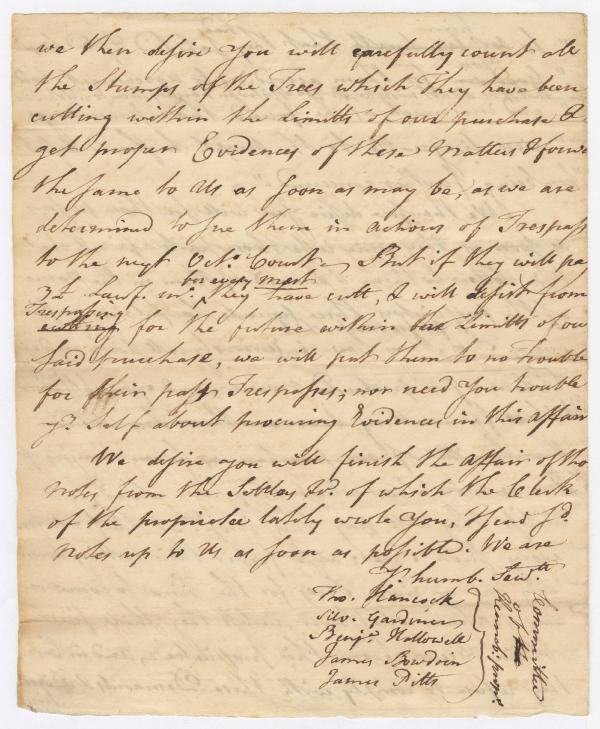 we then desire You will carefully count all
the Stumps of the Trees which They have been
cutting within the Limitts of our purchase &
get proper Evidences of these Matters & forwd
the same to Us as soon as may be, as we are
determined to sue them in actions of Trespass
to the next Octo. Court. But if they will pa
for every mast
3£ Lawf. mo. they have cutt, & will desist from
Trespassing
cutting for the future within the Limitts of our
said purchase, we will put them to no trouble
for their past Trespasses; nor need You trouble
yr. Self about procuring Evidences in this affair
We desire you will finish the affair of the
notes from the Settlers &c. of which the Clerk
of the proprietee lately wrote You, & send sd.
notes up to Us as soon as possible. We are
Yr. humb. Servts.
Tho. Hancock
Silv. Gardiner
Benja. Hallowell
James Bowdoin
James Pitts
Committee
of the
Kennebc. purchs.